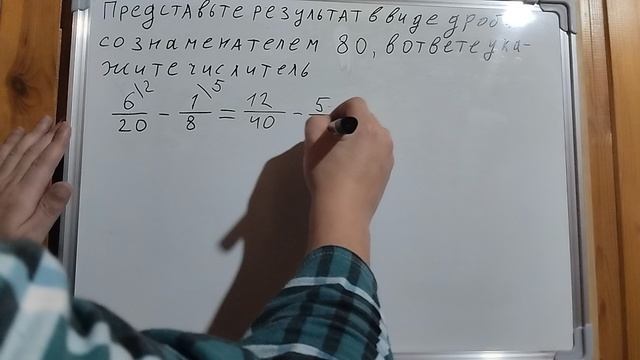 Представьте результат в виде дроби
со знаменателем 80, в ответе ука-
жите числитель
6\2/20 - 1\5/8 = 12/40 - 5